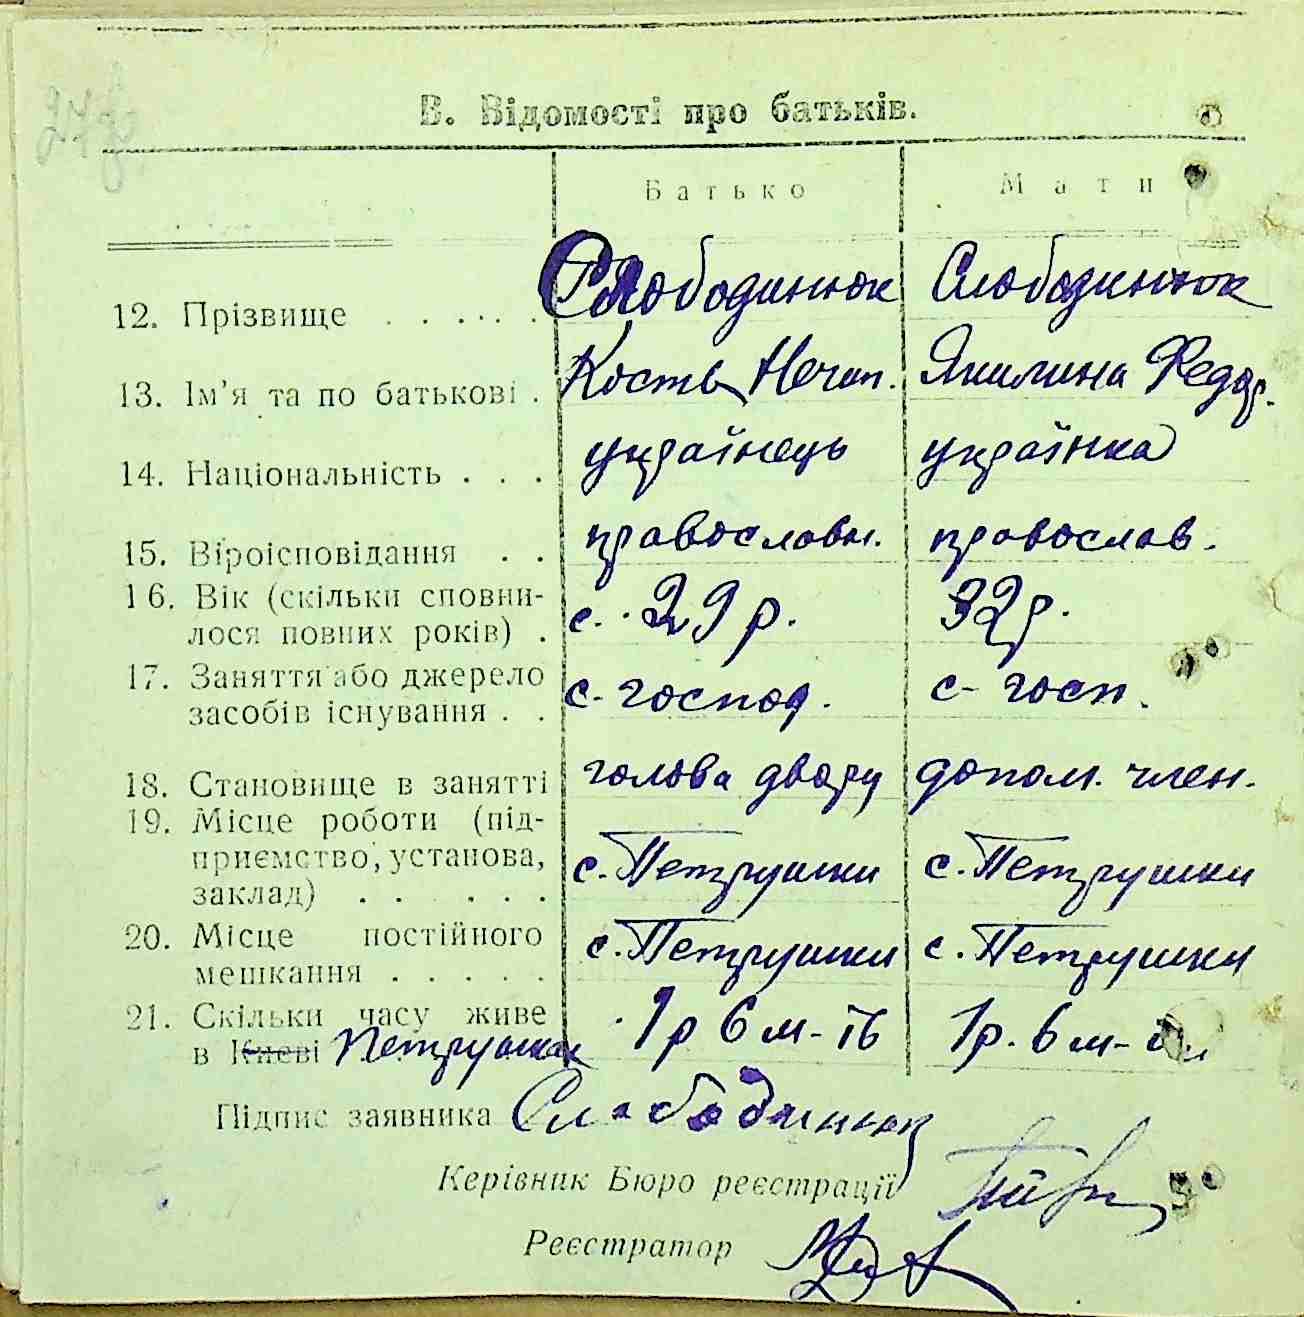 В. Відомості про батьків.
Батько Мати
12. Прізвище . . . . . . Слободинюк Слободинюк
13. Ім'я та по батькові . Кость Нечип. Якилина Федор.
14. Національність . . . українець українка
15. Віроісповідання . . православн. православ.
16. Вік (скільки сповни-
лося повних років) . 29 р. 32 р.
17. Заняття або джерело
засобів існування . . с-господ. с-госп.
18. Становище в занятті голова двору допом. член.
19. Місце роботи (під-
приємство, установа,
заклад) . . . . . . с. Петрушки с. Петрушки
20. Місце постійного
мешкання . . . . . с. Петрушки с. Петрушки
21. Скільки часу живе
в Києві Петрушках 1 р 6 м-ів 1 р. 6 м-ів
Підпис заявника Слободинюк
Керівник Бюро реєстрації
Реєстратор